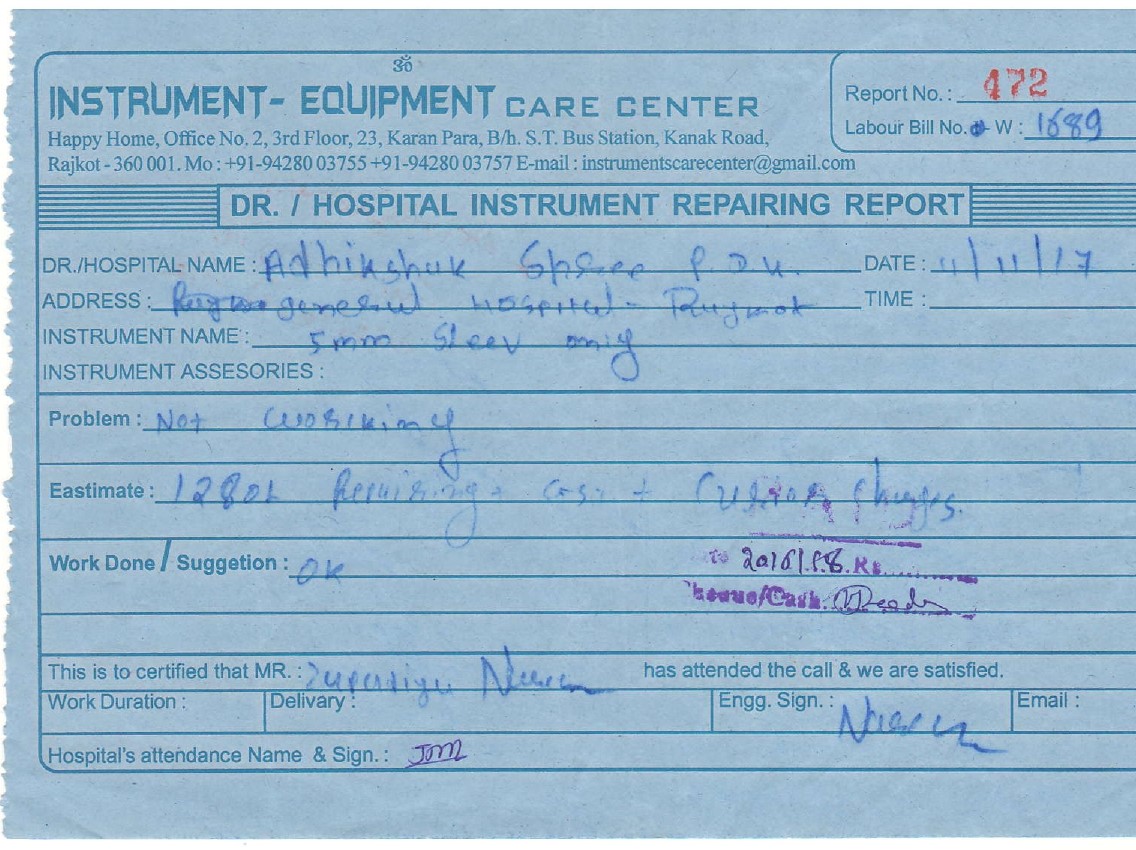 ॐ
INSTRUMENT- EQUIPMENT CARE CENTER
Happy Home, Office No. 2, 3rd Floor, 23, Karan Para, B/h. S.T. Bus Station, Kanak Road,
Rajkot - 360 001. Mo : +91-94280 03755 +91-94280 03757 E-mail : instrumentscarecenter@gmail.com
Report No. : 472
Labour Bill No. W : 1689
DR. / HOSPITAL INSTRUMENT REPAIRING REPORT
DR./HOSPITAL NAME : Adhikshak Shree P.D.U. DATE : 11/11/17
ADDRESS : general Hospital - TIME :
INSTRUMENT NAME : 5mm Sleev only
INSTRUMENT ASSESORIES :
Problem : Not working
Eastimate : Repairing
Work Done / Suggetion : OK
Rs.
/Cash.
This is to certified that MR. : has attended the call & we are satisfied.
Work Duration : Delivery : Engg. Sign. : Email :
Hospital's attendance Name & Sign. :